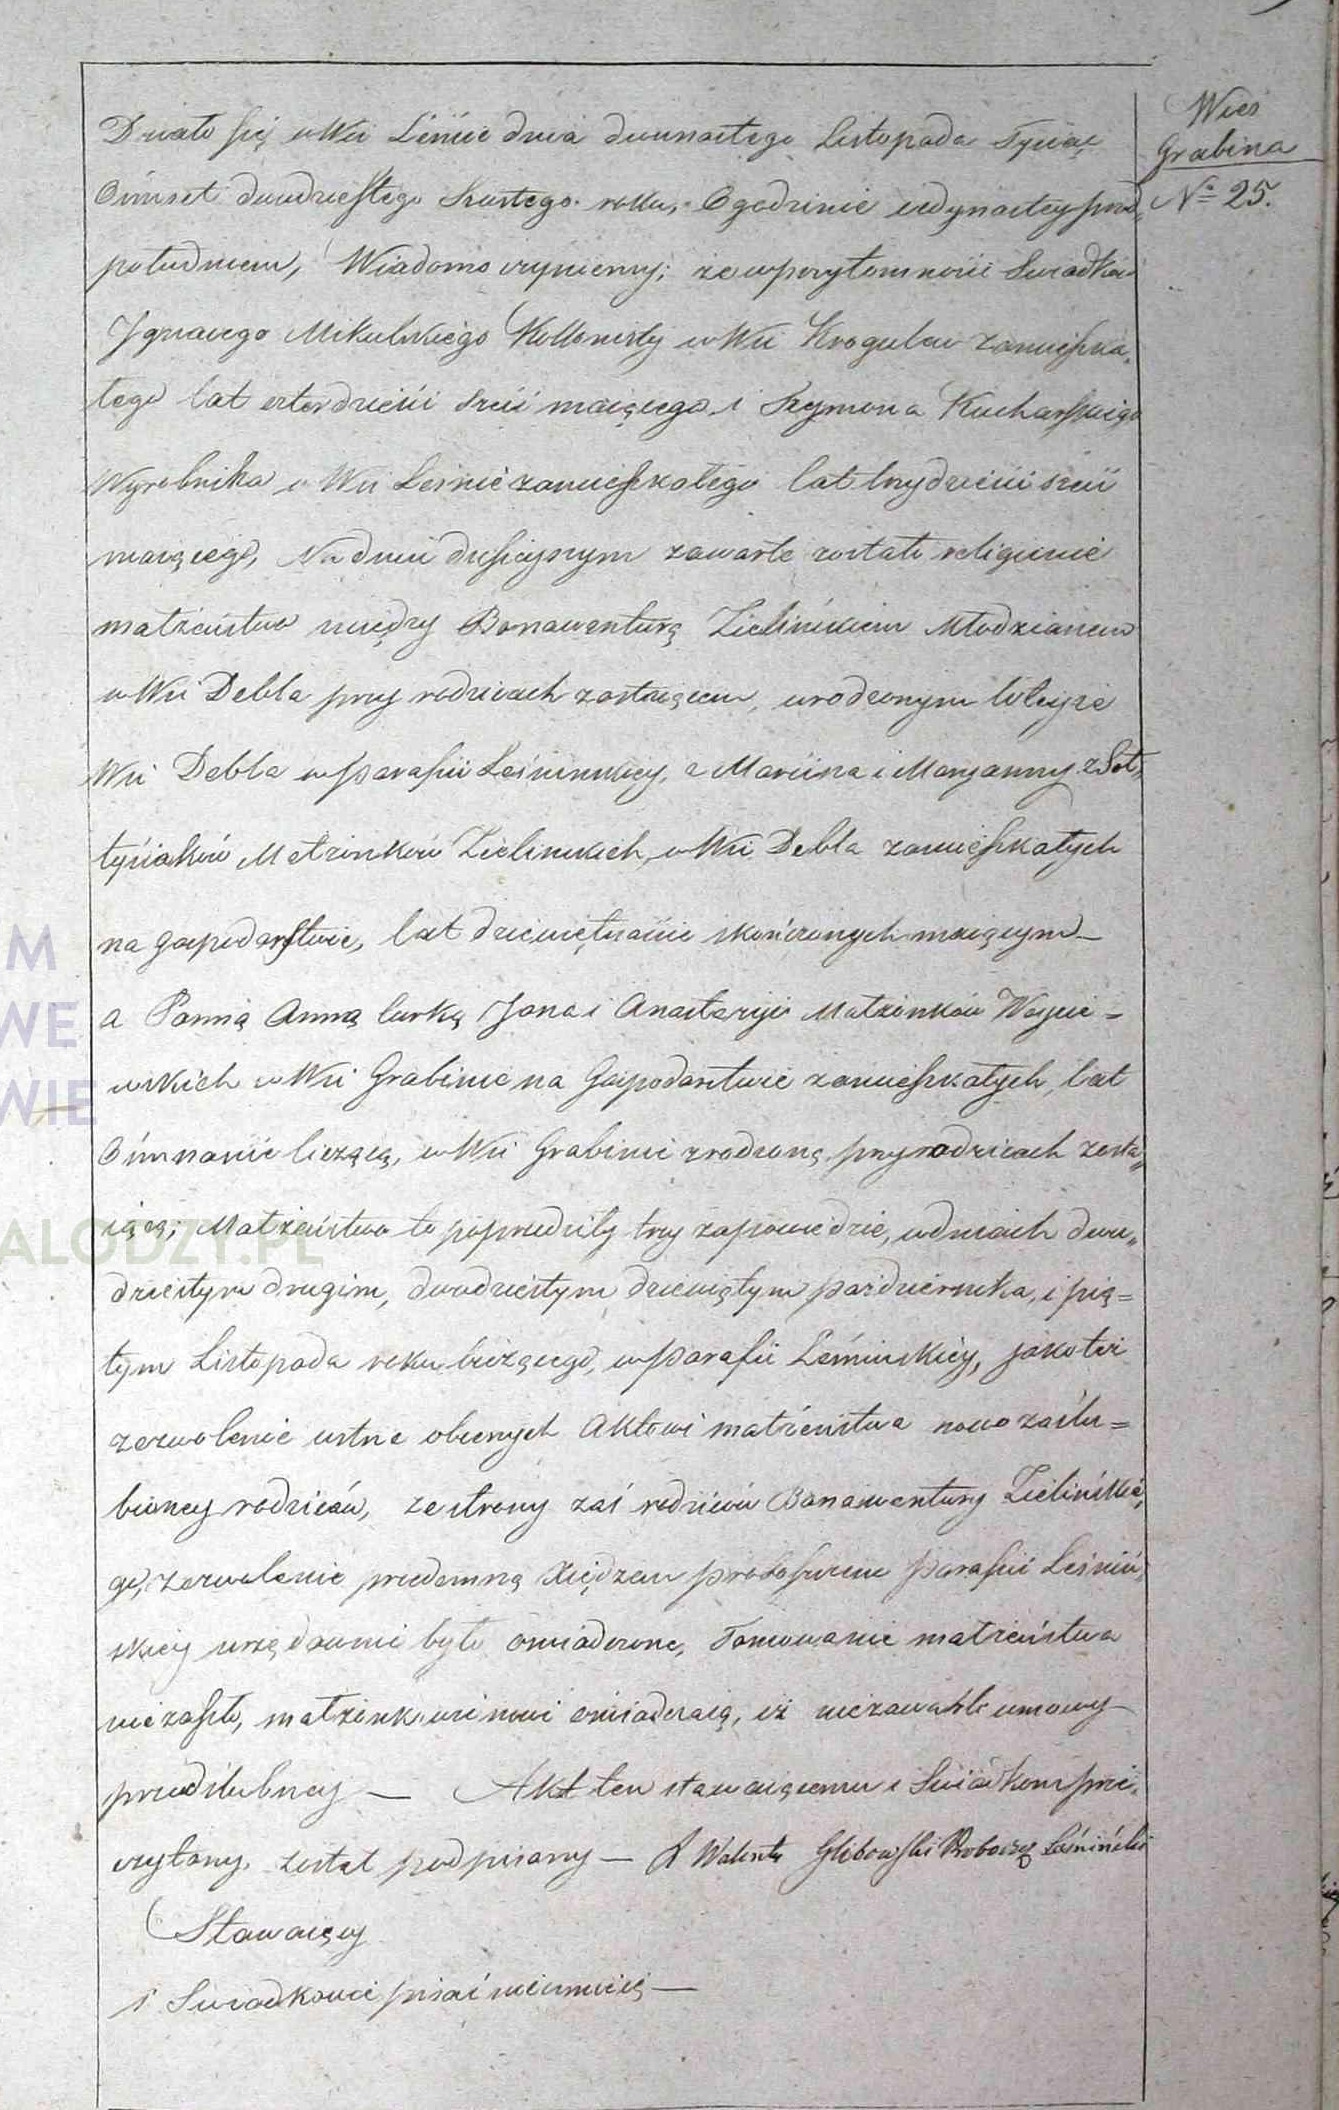 Wieś
Grabina
No 25.
Działo się w Wsi Leśnie dnia dwunastego Listopada Tysiąc
Ośmset dwudziestego Szustego roku, O godzinie iedynastey przed
południem, Wiadomo czyniemy; że w przytomności Swiadków
Ignacego Mikulskiego Kollonisty w Wsi Krogulcu zamieszka„
łego lat czterdzieści sześć maiącego i Szymona Kucharskiego
Wyrobnika w Wsi Leśnie zamieszkałego lat trzydzieści sześć
maiącego, Na dniu dzisieyszym zawarte zostało religijnie
małżeństwo między Bonawenturą Zielińskiem Młodzianem
w Wsi Debla przy rodzicach zostaiącem, urodzonym w teyże
Wsi Debla w parafii Leśmińskiey, z Marcina i Maryanny z Soł„
tysiaków Małżonków Zielinskich, w Wsi Debla zamieszkałych
na gospodarstwie, lat dziewiętnaście skończonych maiącym —
a Panną Anną Curką Jana i Anastazyi Małżonków Woycie =
wskich w Wsi Grabinie na Gospodarstwie zamieszkałych, lat
Ośmnaście liczącą, w Wsi Grabinie zrodzoną przy rodzicach zosta„
iącą; Małżeństwo to poprzedziły trzy zapowiedzie, w dniach dwu„
dziestym drugim, dwudziestym dziewiątym pazdziernika, i pią=
tym Listopada roku bieżącego, w parafii Leśmińskiey, jako też
zezwolenie ustne obecnych Aktowi małżeństwa nowo zaślu=
bioney rodziców, ze strony zaś rodziców Bonawentury Zielińskie„
go, zezwolenie przedemną Xiędzem proboszczem parafii Leśmiń„
skiey urzędownie było oświadczone, Tamowanie małżeństwa
nie zaszło, małżonkowie nowi oświadczaią, iż nie zawarli umowy
przedślubney — Akt ten stawaiącemu i Świadkom prze„
czytany został podpisany — X Walenty Glibowski Proboszcz Leśmiński
Stawaiący
i Swiadkowie pisać nieumieią —
M
WE
WIE
ALODZY.PL